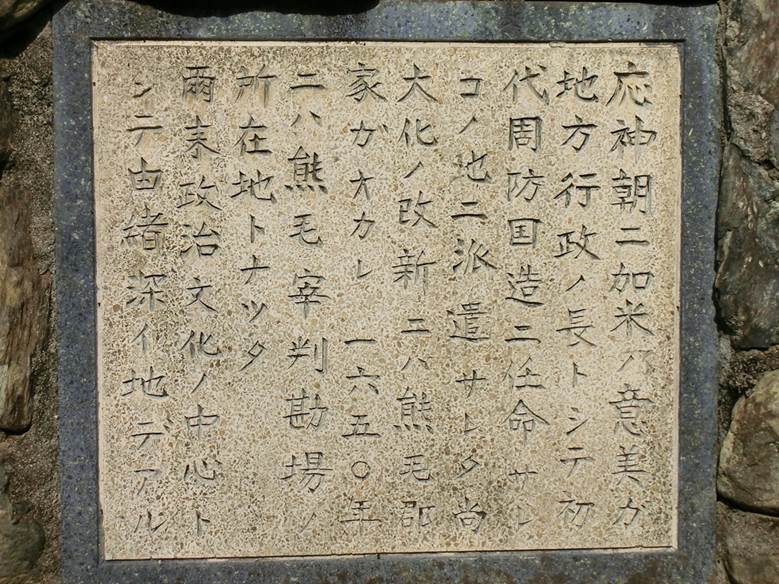 応神朝ニ加米乃意美ガ
地方行政ノ長トシテ初
代周防国造ニ任命サレ
コノ地ニ派遣サレタ尚
大化ノ改新ニハ熊毛郡
家ガオカレ 一六五〇年
ニハ熊毛宰判勘場ノ
所在地トナツタ
爾来政治文化ノ中心ト
シテ由緒深イ地デアル